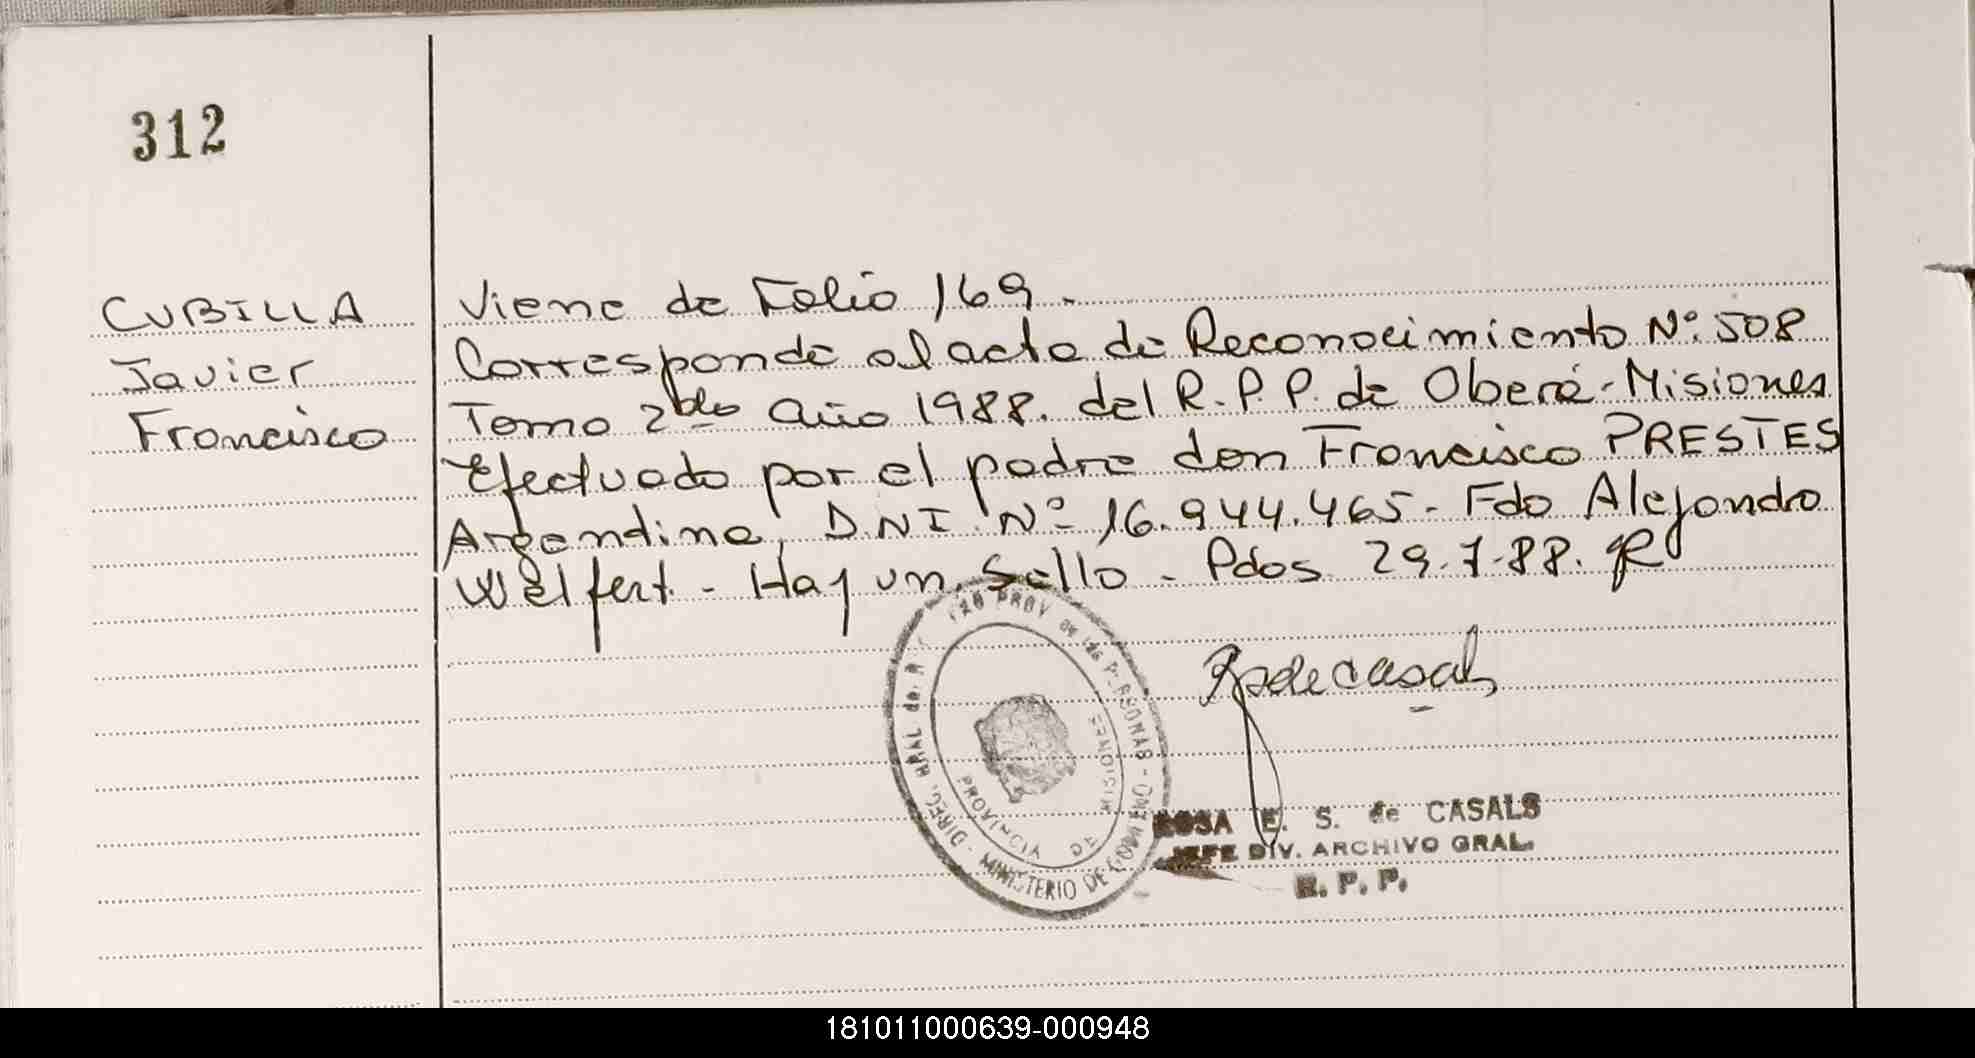 312
CUBILLA
Javier
Francisco
Viene de Folio 169.
Corresponde al acta de Reconocimiento Nº: 508
Tomo 2do año 1988. del R.P.P. de Oberá - Misiones
Efectuado por el padre don Francisco PRESTES
Argentino, D.N.I. Nº 16.944.465 - Fdo Alejandro
Welfert. - Hay un Sello - Pdos 29.7.88.
DIREC. GRAL de PROV de las PERSONAS - MINISTERIO DE GOBIERNO
PROVINCIA DE MISIONES
RSdeCasals
ROSA E. S. de CASALS
JEFE DIV. ARCHIVO GRAL.
R. P. P.
181011000639-000948